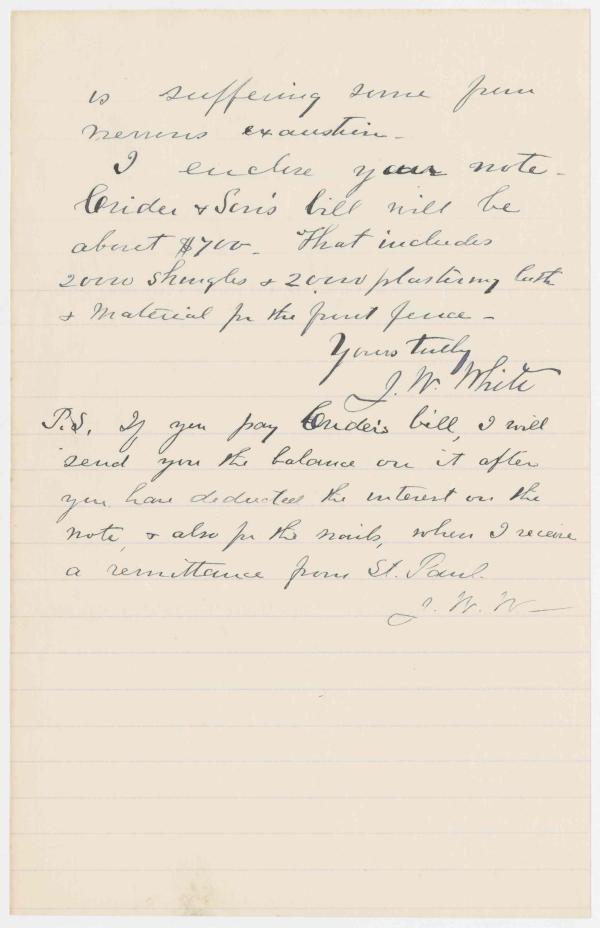 is suffering some from
nervous exaustion -
I enclose your note -
Crider & Son's bill will be
about $700 - That includes
2000 Shingles & 2000 plastering lath
& Material for the front fence -
Yours truly
J. W. White
P.S. If you pay Crider's bill, I will
send you the balance on it after
you have deducted the interest on the
note, & also for the nails, when I receive
a remittance from St. Paul.
J. W. W -